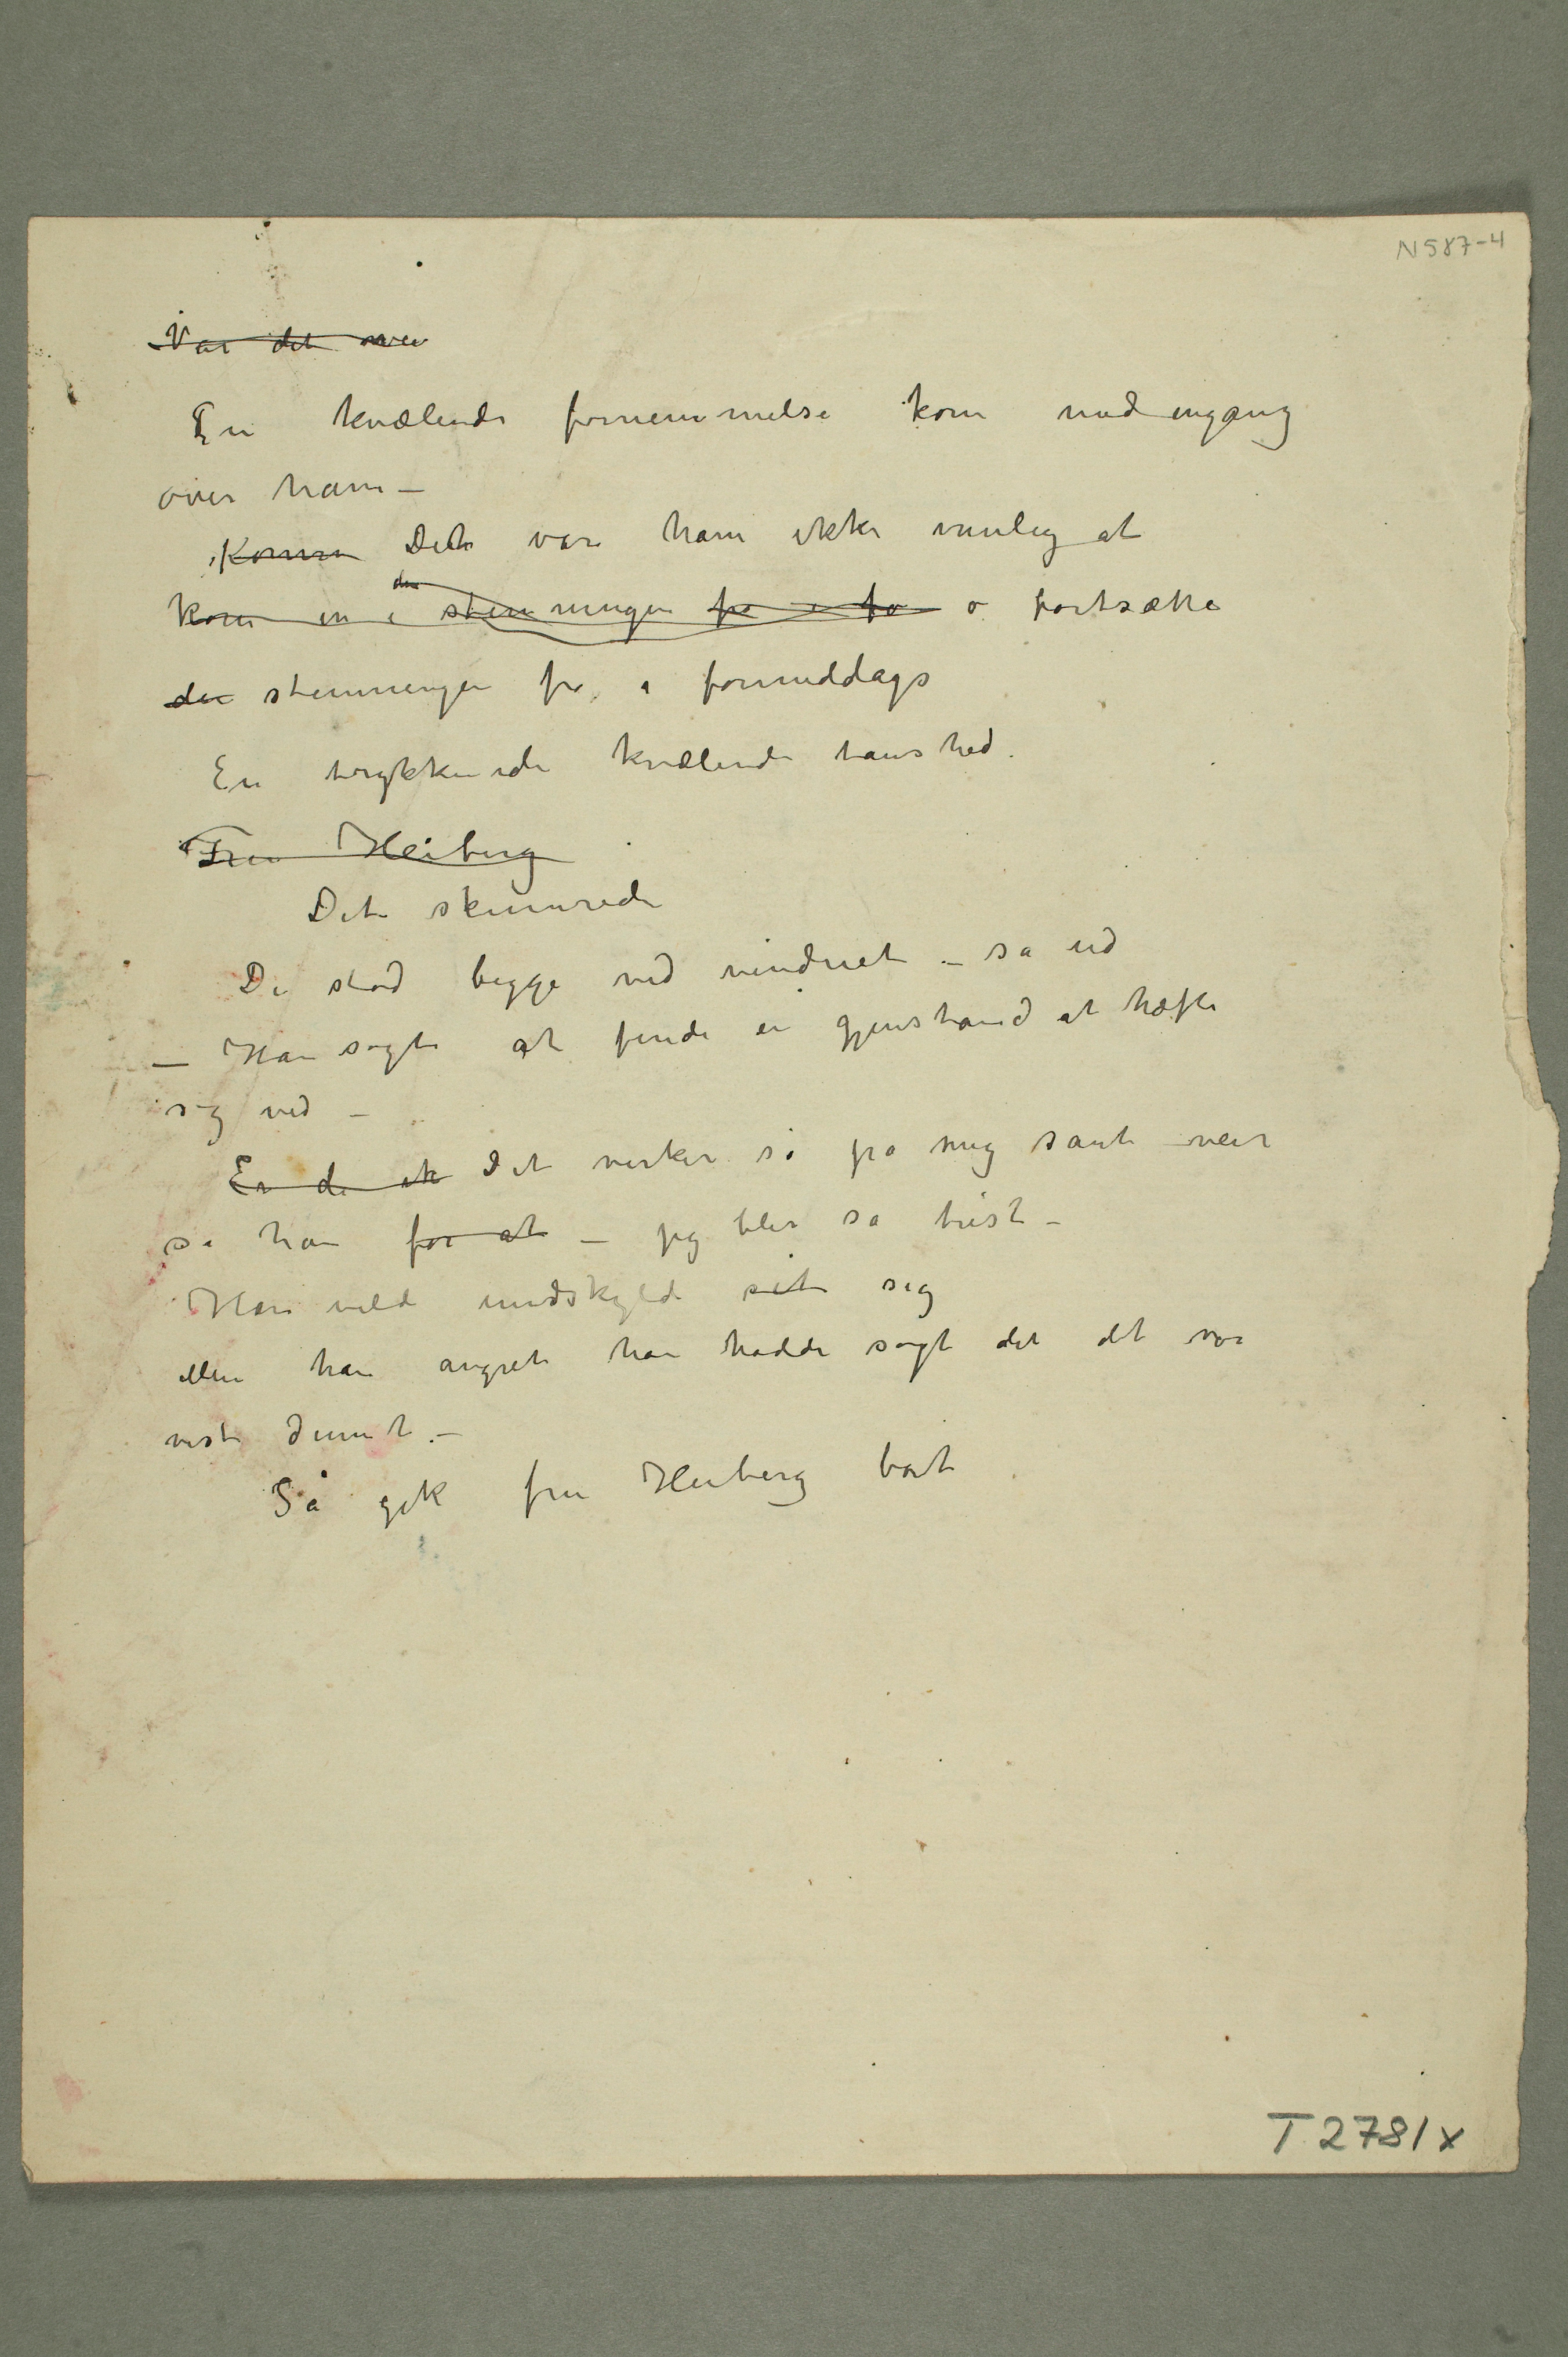 N 587-4
Var det over
En kvælende fornemmelse kom medengang
over ham –
Komme Det var ham ikke mulig at
den
kom in i stemningen fra i fo o fortsætte
den stemningen fra i formiddags
En trykkende kvælende taushed.
Fru Heiberg
Det skumrede
De stod begge ved vinduet – sa ud
– Han søgte at finde en gjenstand at hæfte
sig ved –
Er de ik Det virker så på mig sant veir
sa han for at – jeg blir så trist –
Han vilde undskylde sit sig
ellen han angret han hadde sagt det det var
vist dumt. –
Så gik fru Heiberg bort
T 2781x